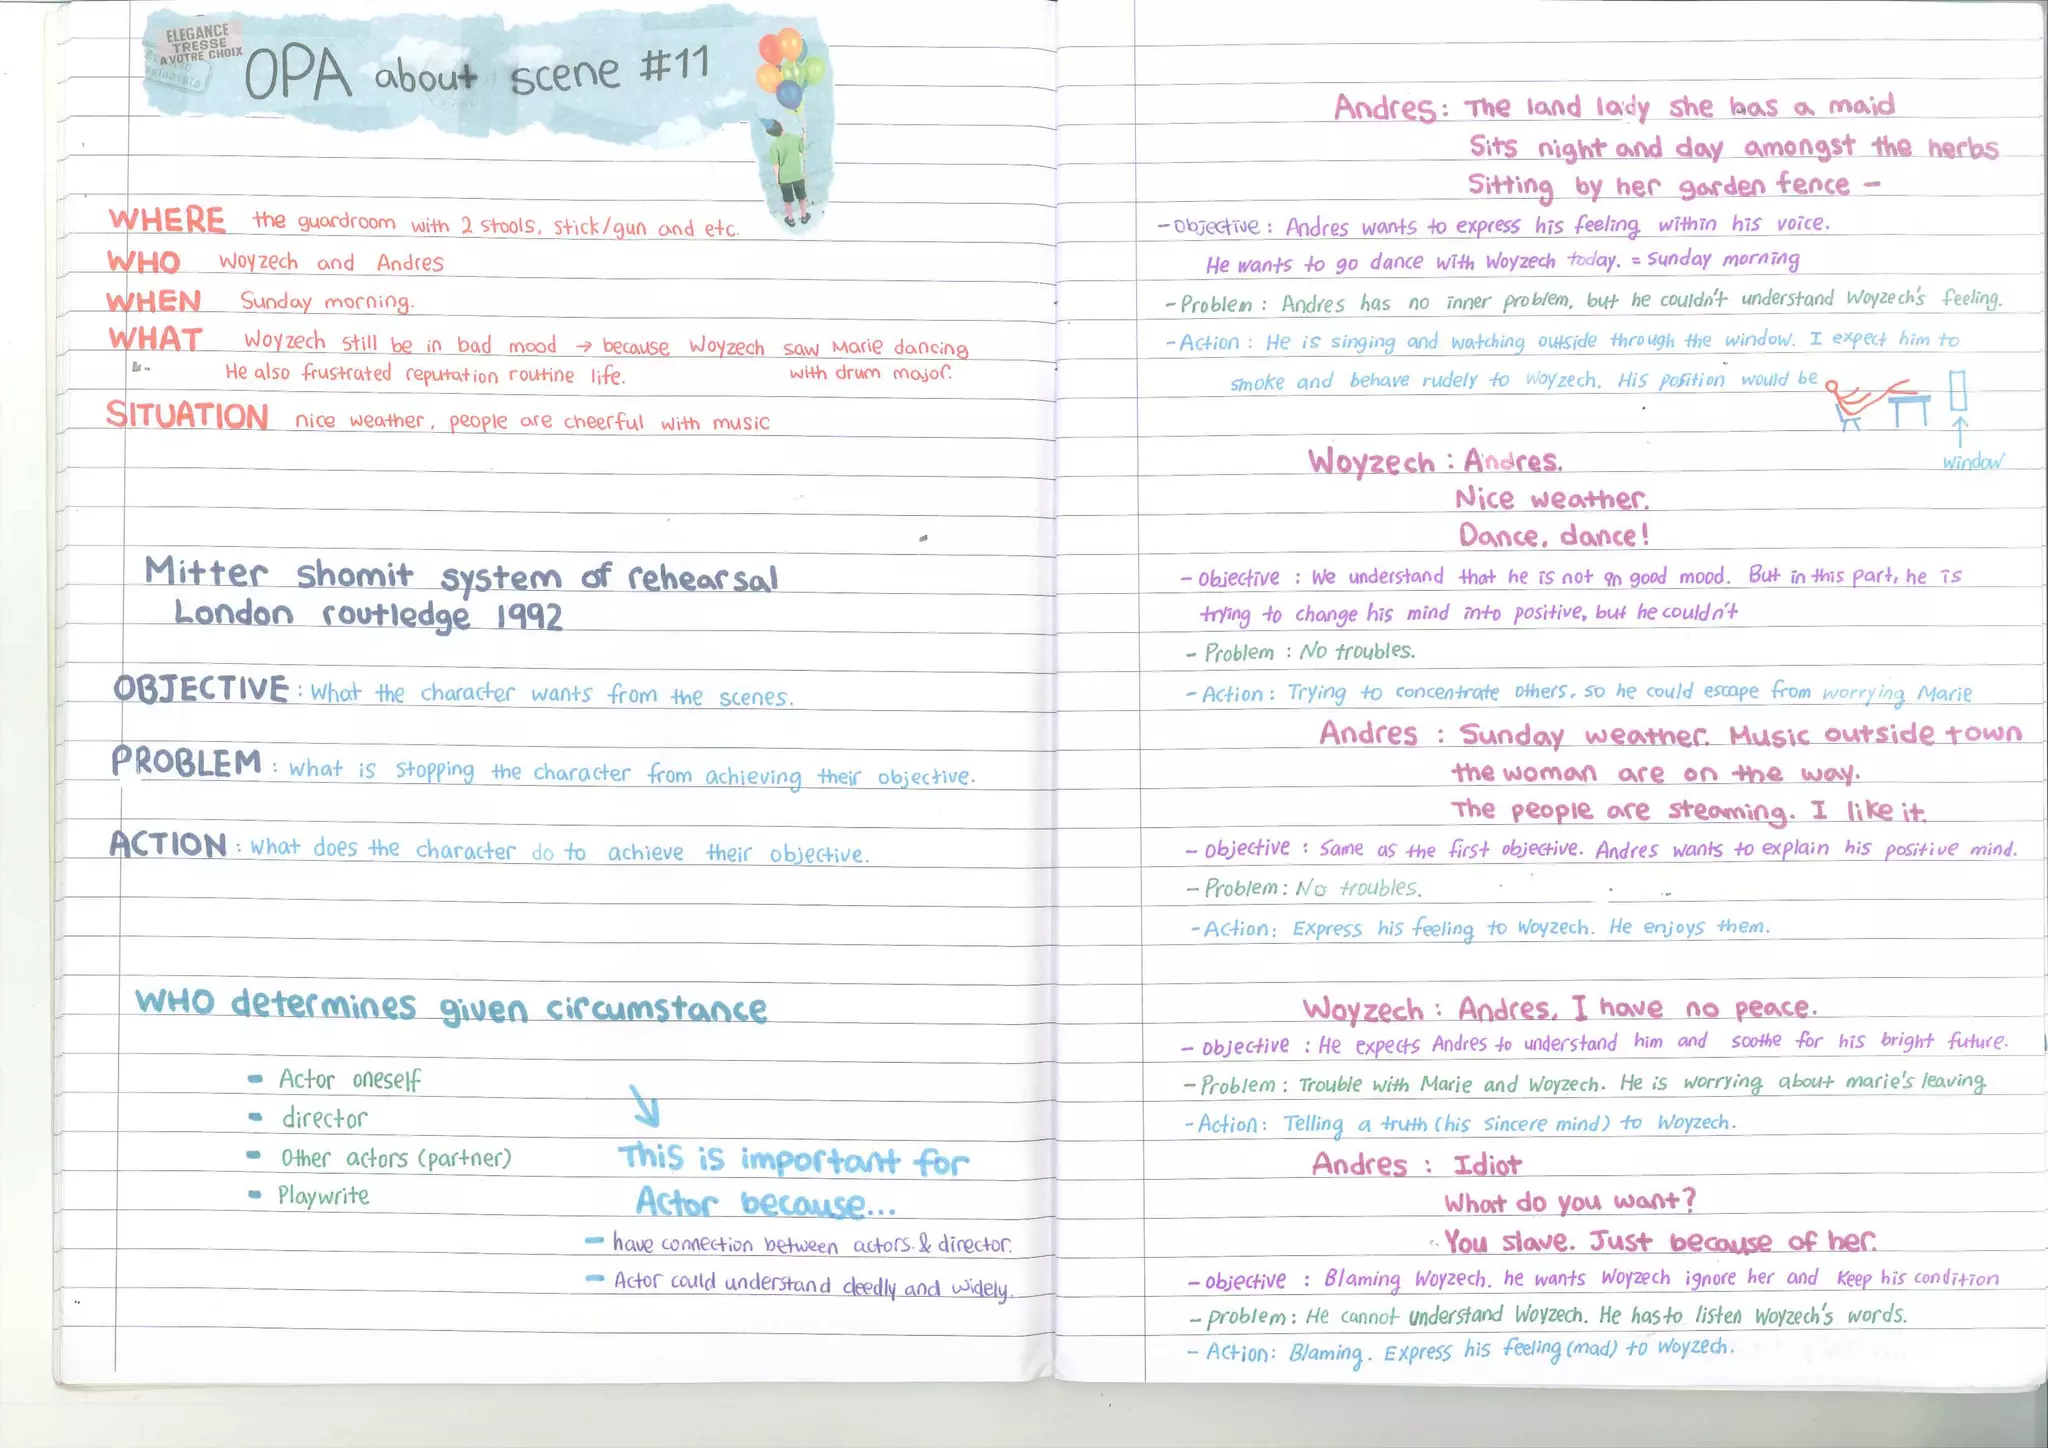 ELEGANCE
TRESSE
A VOTRE CHOIX
OPA about scene #11
WHERE the guardroom with 2 stools, stick/gun and etc.
WHO Woyzech and Andres
WHEN Sunday morning.
WHAT Woyzech still be in bad mood → because Woyzech saw Marie dancing
with drum major.
He also frustrated reputation routine life.
SITUATION nice weather, people are cheerful with music
Mitter Shomit system of rehearsal
London routledge 1992
OBJECTIVE : What the character wants from the scenes.
PROBLEM : what is stopping the character from achieving their objective.
ACTION : what does the character do to achieve their objective.
WHO determines given circumstance
- Actor oneself
- director
- Other actors (partner)
- Playwrite
↘
This is important for
Actor because...
- have connection between actors & director.
- Actor could understand deedly and widely.
Andres : The land lady she has a maid
Sits night and day amongst the herbs
Sitting by her garden fence -
- Objective : Andres wants to express his feeling within his voice.
He wants to go dance with Woyzech today. = Sunday morning
- Problem : Andres has no inner problem, but he couldn't understand Woyzech's feeling.
- Action : He is singing and watching outside through the window. I expect him to
smoke and behave rudely to Woyzech. His position would be
window
Woyzech : Andres.
Nice weather.
Dance, dance!
- Objective : We understand that he is not in good mood. But in this part, he is
trying to change his mind into positive, but he couldn't
- Problem : No troubles.
- Action : Trying to concentrate others, so he could escape from worrying Marie
Andres : Sunday weather. Music outside town
the woman are on the way.
The people are steaming. I like it.
- Objective : Same as the first objective. Andres wants to explain his positive mind.
- Problem : No troubles.
- Action : Express his feeling to Woyzech. He enjoys them.
Woyzech : Andres, I have no peace.
- Objective : He expects Andres to understand him and soothe for his bright future.
- Problem : Trouble with Marie and Woyzech. He is worrying about marie's leaving
- Action : Telling a truth (his sincere mind) to Woyzech.
Andres : Idiot
What do you want?
You slave. Just because of her.
- Objective : Blaming Woyzech. he wants Woyzech ignore her and keep his condition
- problem : He cannot understand Woyzech. He has to listen Woyzech's words.
- Action : Blaming. Express his feeling (mad) to Woyzech.